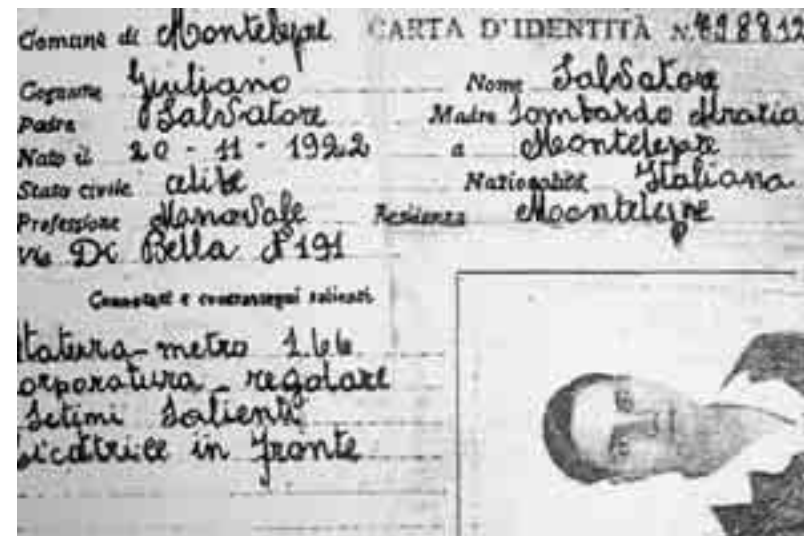 Comune di Montelepre CARTA D'IDENTITÀ N. 498812
Cognome Giuliano Nome Salvatore
Padre Salvatore Madre Lombardo Maria
Nato il 20-11-1922 a Montelepre
Stato civile celibe Nazionalità Italiana
Professione Manovale Residenza Montelepre
via Di Bella N 191
Connotati e contrassegni salienti
statura - metro 1.66
corporatura - regolare
salienti
cicatrice in fronte